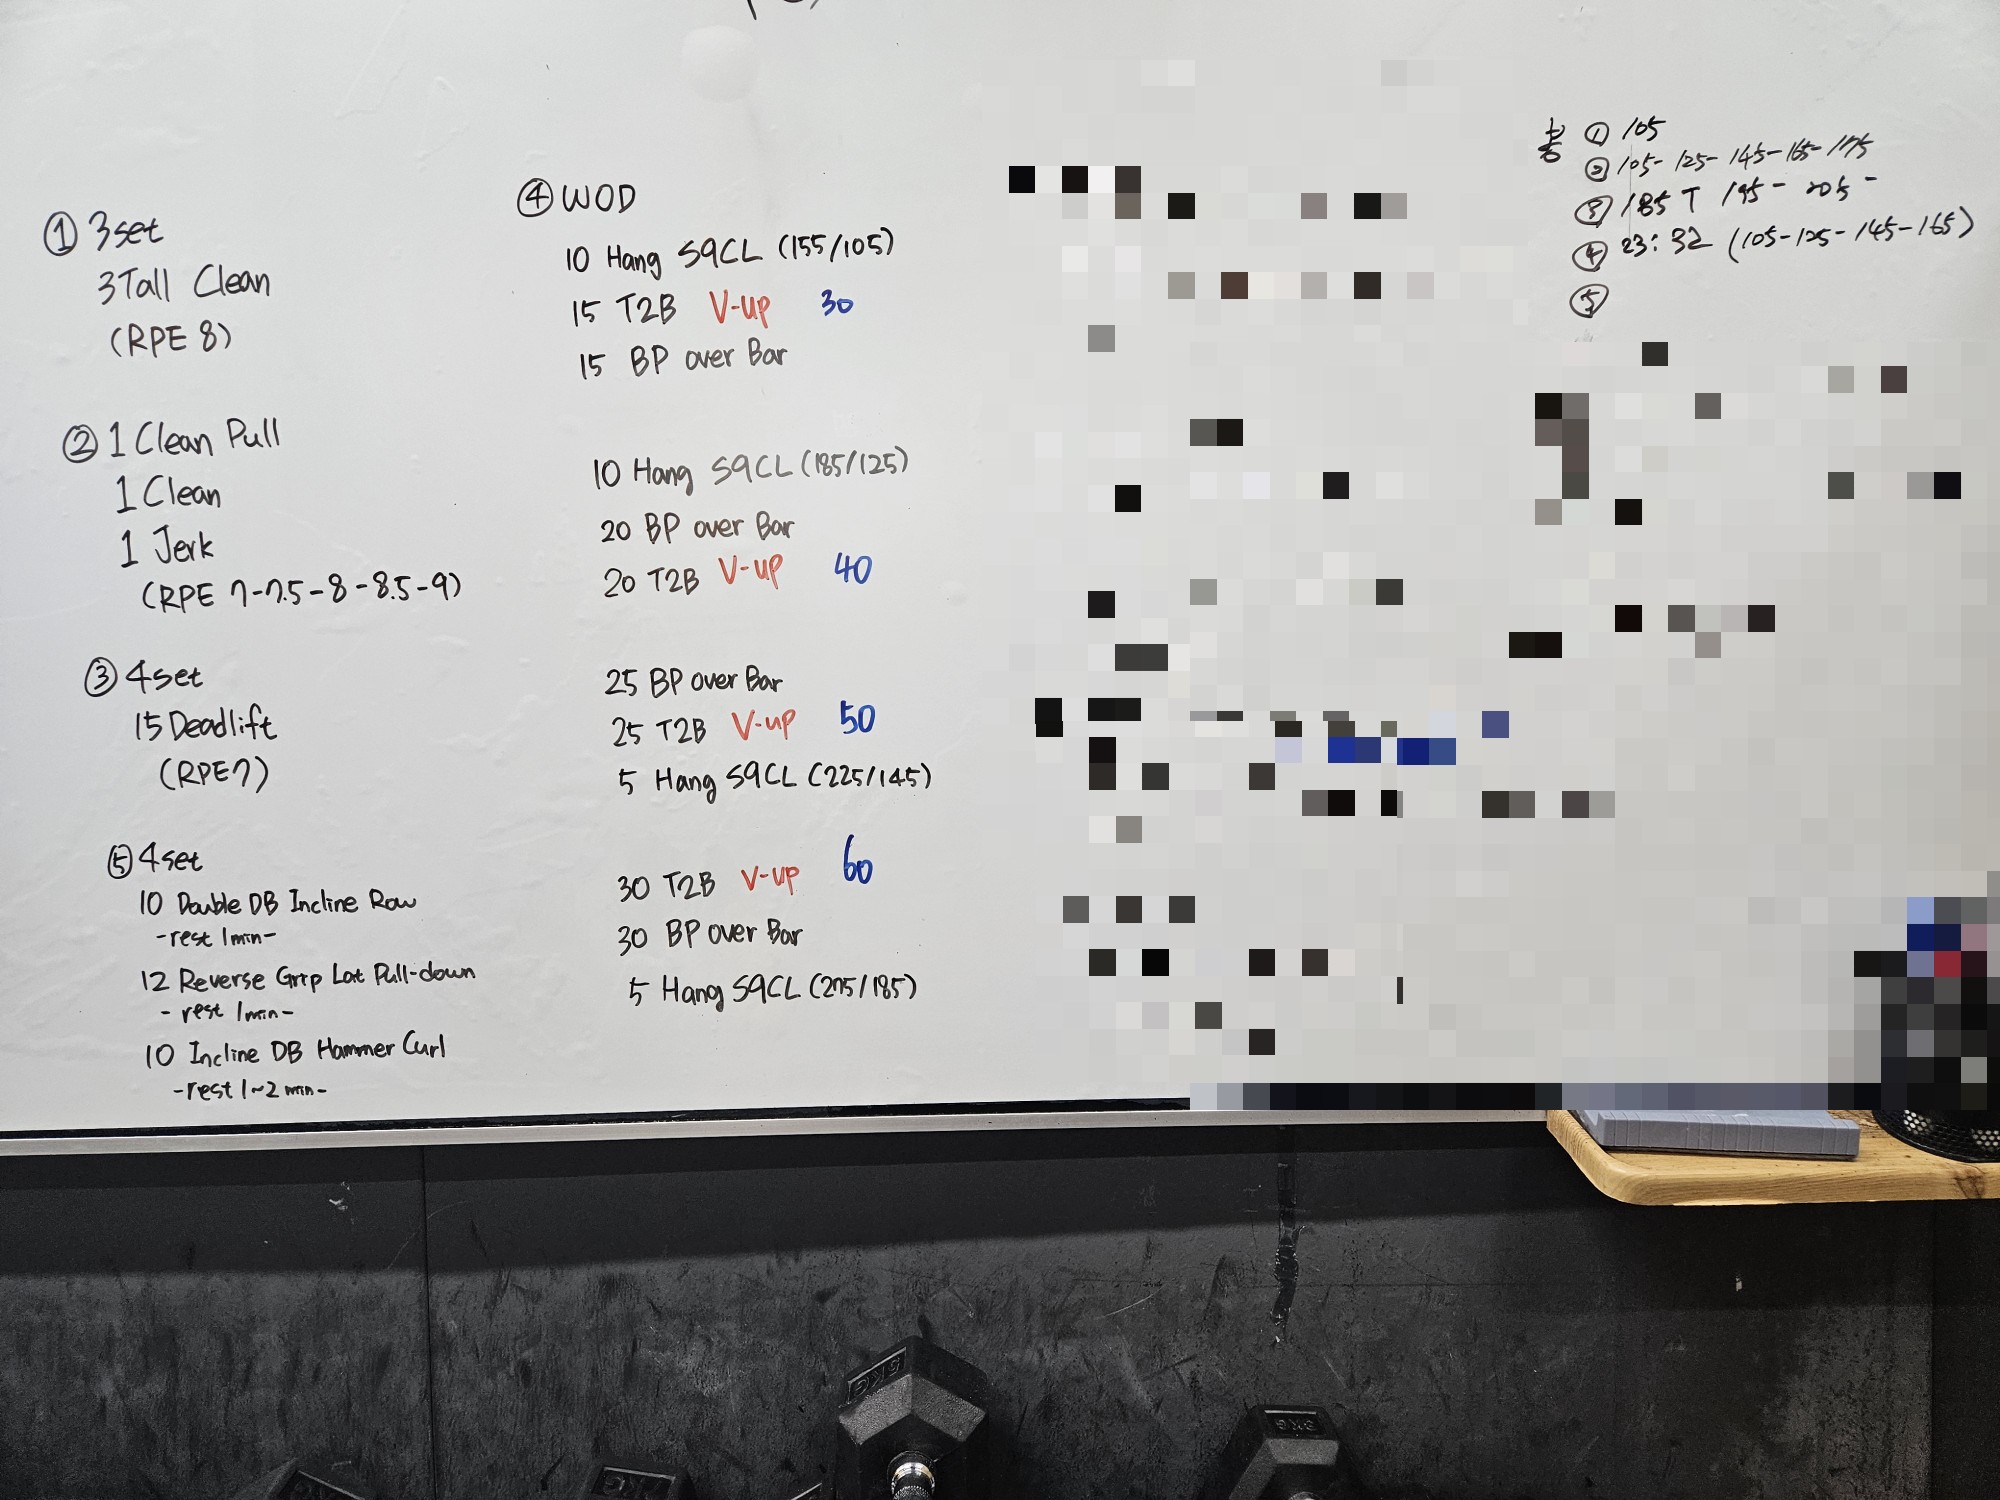 ① 3set
3 Tall Clean
(RPE 8)
② 1 Clean Pull
1 Clean
1 Jerk
(RPE 7-7.5-8-8.5-9)
③ 4set
15 Deadlift
(RPE 7)
⑤ 4set
10 Double DB Incline Row
-rest 1min-
12 Reverse Grip Lat Pull-down
- rest 1min-
10 Incline DB Hammer Curl
-rest 1~2 min-
④ WOD
10 Hang SqCL (155/105)
15 T2B V-up 30
15 BP over Bar
10 Hang SqCL (185/125)
20 BP over Bar
20 T2B V-up 40
25 BP over Bar
25 T2B V-up 50
5 Hang SqCL (225/145)
30 T2B V-up 60
30 BP over Bar
5 Hang SqCL (275/185)
① 105
② 105-125-145-165-175
③ 185 T 195- 205-
④ 23:32 (105-125-145-165)
⑤
5KG